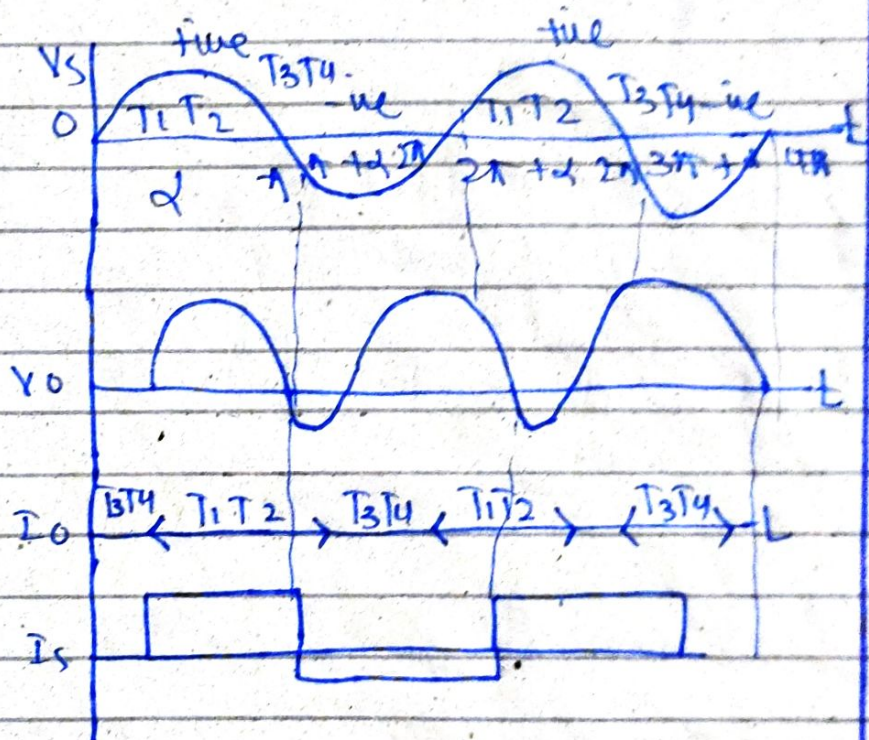 +ive +ive
Vs T3T4 -ive T3T4 -ive
0 T1 T2 T1 T2 t
α π π + α 2π 2π + α 2π 3π + α 4π
VO t
IO T3T4 T1 T2 T3T4 T1T2 T3T4 L
Is